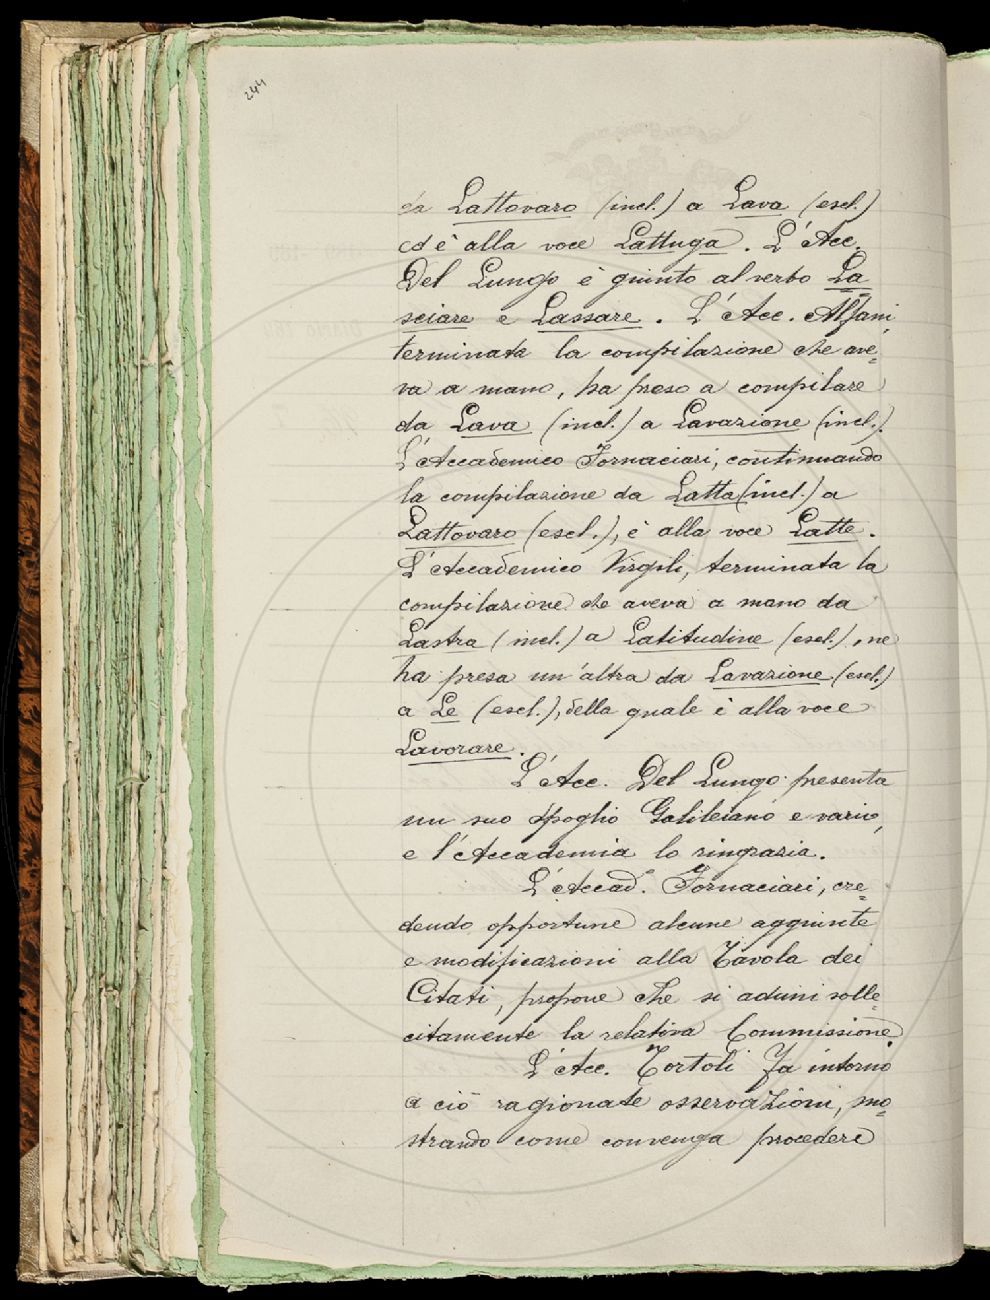 244
da Lattovaro (incl.) a Lava (escl.)
ed è alla voce Lattuga. L'Acc.
Del Lungo è giunto al verbo La
sciare e Lassare. L'Acc. Alfani,
terminata la compilazione che ave=
va a mano, ha preso a compilare
da Lava (incl.) a Lavazione (incl.).
L'Accademico Fornaciari, continuando
la compilazione da Latta (incl.) a
Lattovaro (escl.), è alla voce Latte.
L'Accademico Virgili, terminata la
compilazione che aveva a mano da
Lastra (incl.) a Latitudine (escl.), ne
ha presa un'altra da Lavazione (escl.)
a Le (escl.), della quale è alla voce
Lavorare.
L'Acc. Del Lungo presenta
un suo spoglio Galileiano e vario,
e l'Accademia lo ringrazia.
L'Accad.º Fornaciari, cre=
dendo opportune alcune aggiunte
e modificazioni alla Tavola dei
Citati, propone che si aduni solle=
citamente la relativa Commissione
L'Acc. Tortoli fa intorno
a ciò ragionate osservazioni, mo=
strando come convenga procedere